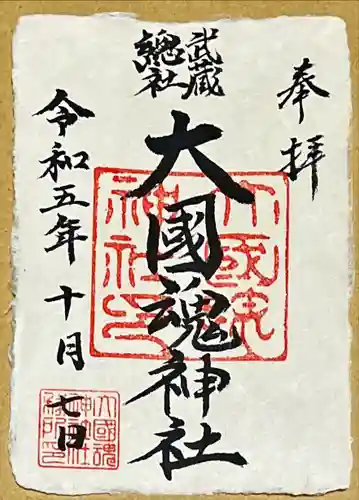 奉拝
武蔵
総社
大國魂神社
令和五年十月七日
大國魂
神社印
大國魂
神社社
務所印